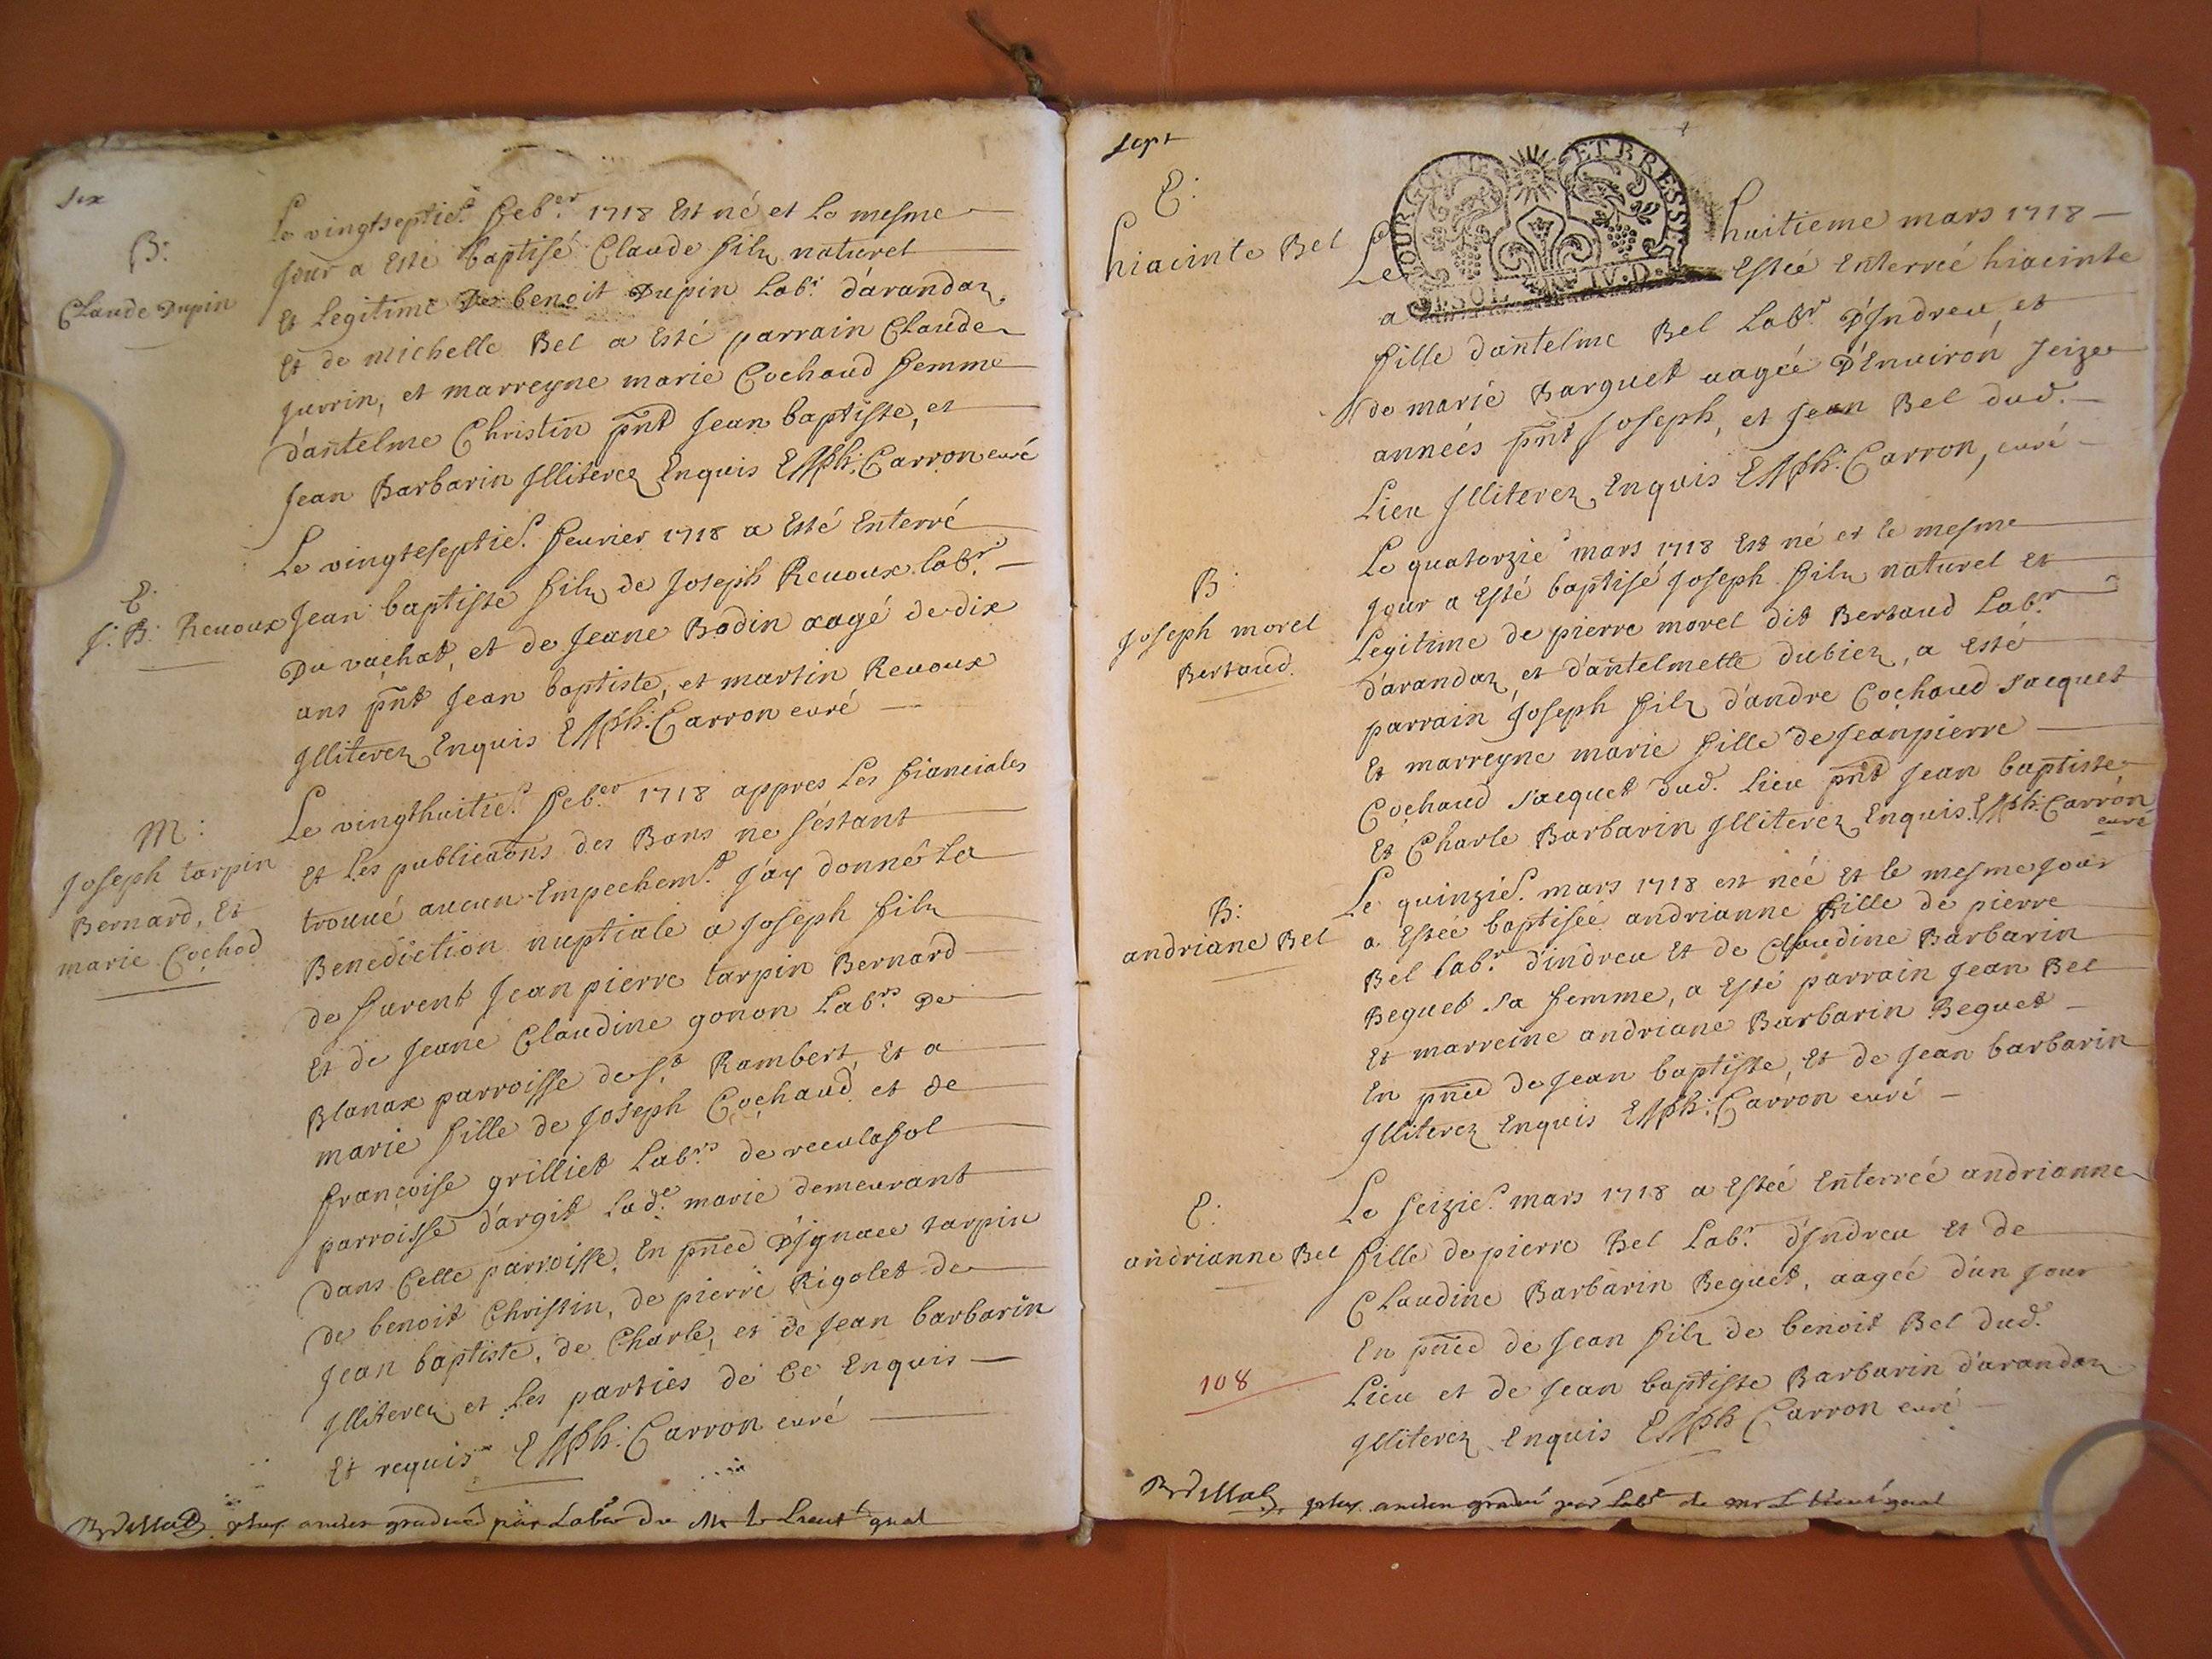 six
B:
Claude Dupin
Le vingtseptie.^e feb.^er 1718 Est né et Le mesme
Jour a Esté baptisé Claude filz naturel
Et Legitime De benoit Dupin Lab.^r d'arandaz
Et de Michelle Bel a Esté parrain Claude
Jurrin, et marreyne marie Cochaud femme
d'antelme Christin pnt Jean baptiste, et
Jean Barbarin Illiterez Enquis Carron curé
E:
J: B: Reuoux
Le vingteseptie.^e feurier 1718 a Esté Enterré
Jean baptiste filz de Joseph Reuoux lab.^r
Du vachat, et de Jeane Bodin aagé de dix
ans pnt Jean baptiste, et martin Reuoux
Illiterez Enquis Carron curé
M:
Joseph tarpin
Bernard, Et
marie Cochod
Le vingthuitie.^e feb.^er 1718 appres Les fianciales
Et Les publicaons des Bans ne s'éstant
trouué aucun Empechem.^t J'ay donné La
Benediction nuptiale a Joseph filz
de furent Jean pierre tarpin Bernard
Et de Jeane Claudine gonon Lab.^rs De
Blanax parroisse de S.^t Rambert, Et a
marie fille de Joseph Cochaud et de
françoise grilliet Lab.^rs de reculafol
parroisse d'argit Lad.^e marie demeurant
dans Celle parroisse, En pnce D'Ignace tarpin
de benoit Christin, de pierre Rigolet de
Jean baptiste, de Charle, et de Jean barbarin
Illiterez et Les parties de Ce Enquis
Et requis Carron curé
plus ancien gradué par Labce de Mr le Lieut^t gnal
sept
E:
hiacinte Bel
BOURGOGNE ET BRESSE
1.SOL. IV.D.
Le huitieme mars 1718
a Estée Enterrée hiacinte
fille dantelme Bel Lab.^r D'Indreu, et
de marie Barquet aagée D'Enuiron seize
années pnt Joseph, et Jean Bel dud.
Lieu Illiterez Enquis Carron, curé
B:
Joseph morel
Bertaud.
Le quatorzie.^e mars 1718 Est né et le mesme
Jour a Esté baptisé Joseph filz naturel et
Legitime de pierre morel dit Bertaud Lab.^r
d'arandaz et d'antelmette dubiez, a Esté
parrain Joseph filz d'andre Cochaud Jacquet
Et marreyne marie fille de Jeanpierre
Cochaud Jacquet dud. Lieu pnt Jean baptiste
Et Charle Barbarin Illiterez Enquis. Carron
curé
B:
andriane Bel
Le quinzie.^e mars 1718 est née Et le mesme Jour
a Estée baptisée andrianne fille de pierre
Bel lab.^r d'indreu Et de Claudine Barbarin
Beguet sa femme, a Esté parrain Jean Bel
Et marreine andriane Barbarin Beguet
En pnce de Jean baptiste, Et de Jean barbarin
Illiterez Enquis Carron curé
E:
andrianne Bel
Le seizie.^e mars 1718 a Estée Enterreé andrianne
fille de pierre Bel Lab.^r d'Indreu et de
Claudine Barbarin Beguet, aagée d'un Jour
En pnce de Jean filz de benoit Bel dud.
Lieu et de Jean baptiste Barbarin d'arandaz
Illiterez Enquis Carron curé
108
plus ancien gradué par Labce de mr L Lieut^t gnal